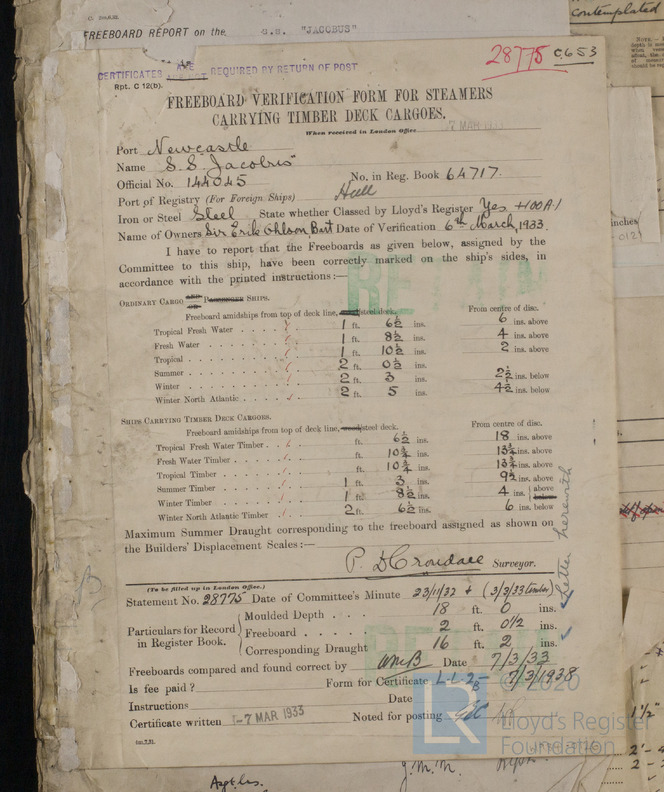 contemplated
C. 2m.8.32.
FREEBOARD REPORT on the S.S. "JACOBUS"
28775 C.653
CERTIFICATES ARE REQUIRED BY RETURN OF POST
Rpt. C 12(b).
FREEBOARD VERIFICATION FORM FOR STEAMERS
CARRYING TIMBER DECK CARGOES.
When received in London Office 7 MAR 1933
Port Newcastle
Name S.S. "Jacobus"
Official No. 144045 No. in Reg. Book 64717.
Port of Registry (For Foreign Ships) Hull
Iron or Steel Steel State whether Classed by Lloyd's Register Yes +100A.1
Name of Owners Sir Erik Ohlson, Bart Date of Verification 6th March, 1933.
I have to report that the Freeboards as given below, assigned by the
Committee to this ship, have been correctly marked on the ship's sides, in
accordance with the printed instructions:—
RETAIN
ORDINARY CARGO AND OR PASSENGER SHIPS.
Freeboard amidships from top of deck line, wood/steel deck. From centre of disc.
Tropical Fresh Water 1 ft. 6½ ins. 6 ins. above
Fresh Water 1 ft. 8½ ins. 4 ins. above
Tropical 1 ft. 10½ ins. 2 ins. above
Summer 2 ft. 0½ ins.
Winter 2 ft. 3 ins. 2½ ins. below
Winter North Atlantic 2 ft. 5 ins. 4½ ins. below
SHIPS CARRYING TIMBER DECK CARGOES.
Freeboard amidships from top of deck line, wood/steel deck. From centre of disc.
Tropical Fresh Water Timber ft. 6½ ins. 18 ins. above
Fresh Water Timber ft. 10¾ ins. 13¾ ins. above
Tropical Timber ft. 10¾ ins. 13¾ ins. above
Summer Timber 1 ft. 3 ins. 9½ ins. above
Winter Timber 1 ft. 8½ ins. 4 ins. above below
Winter North Atlantic Timber 2 ft. 6½ ins. 6 ins. below
Maximum Summer Draught corresponding to the freeboard assigned as shown on
the Builders' Displacement Scales:—
Letter herewith
P. D. Crondace Surveyor.
(To be filled up in London Office.)
Statement No. 28775 Date of Committee's Minute 23/11/32 + (3/3/33 timber)
Particulars for Record in Register Book.
Moulded Depth 18 ft. 0 ins.
Freeboard 2 ft. 0½ ins.
Corresponding Draught 16 ft. 2 ins.
RETAIN
Freeboards compared and found correct by WMB Date 7/3/33
Is fee paid? Form for Certificate L-L-2B 7/3/1938
Instructions Date
Certificate written -7 MAR 1933 Noted for posting
1m.7.31.
© 2020
LR
Lloyd's Register
Foundation
1½"
J.M.M.